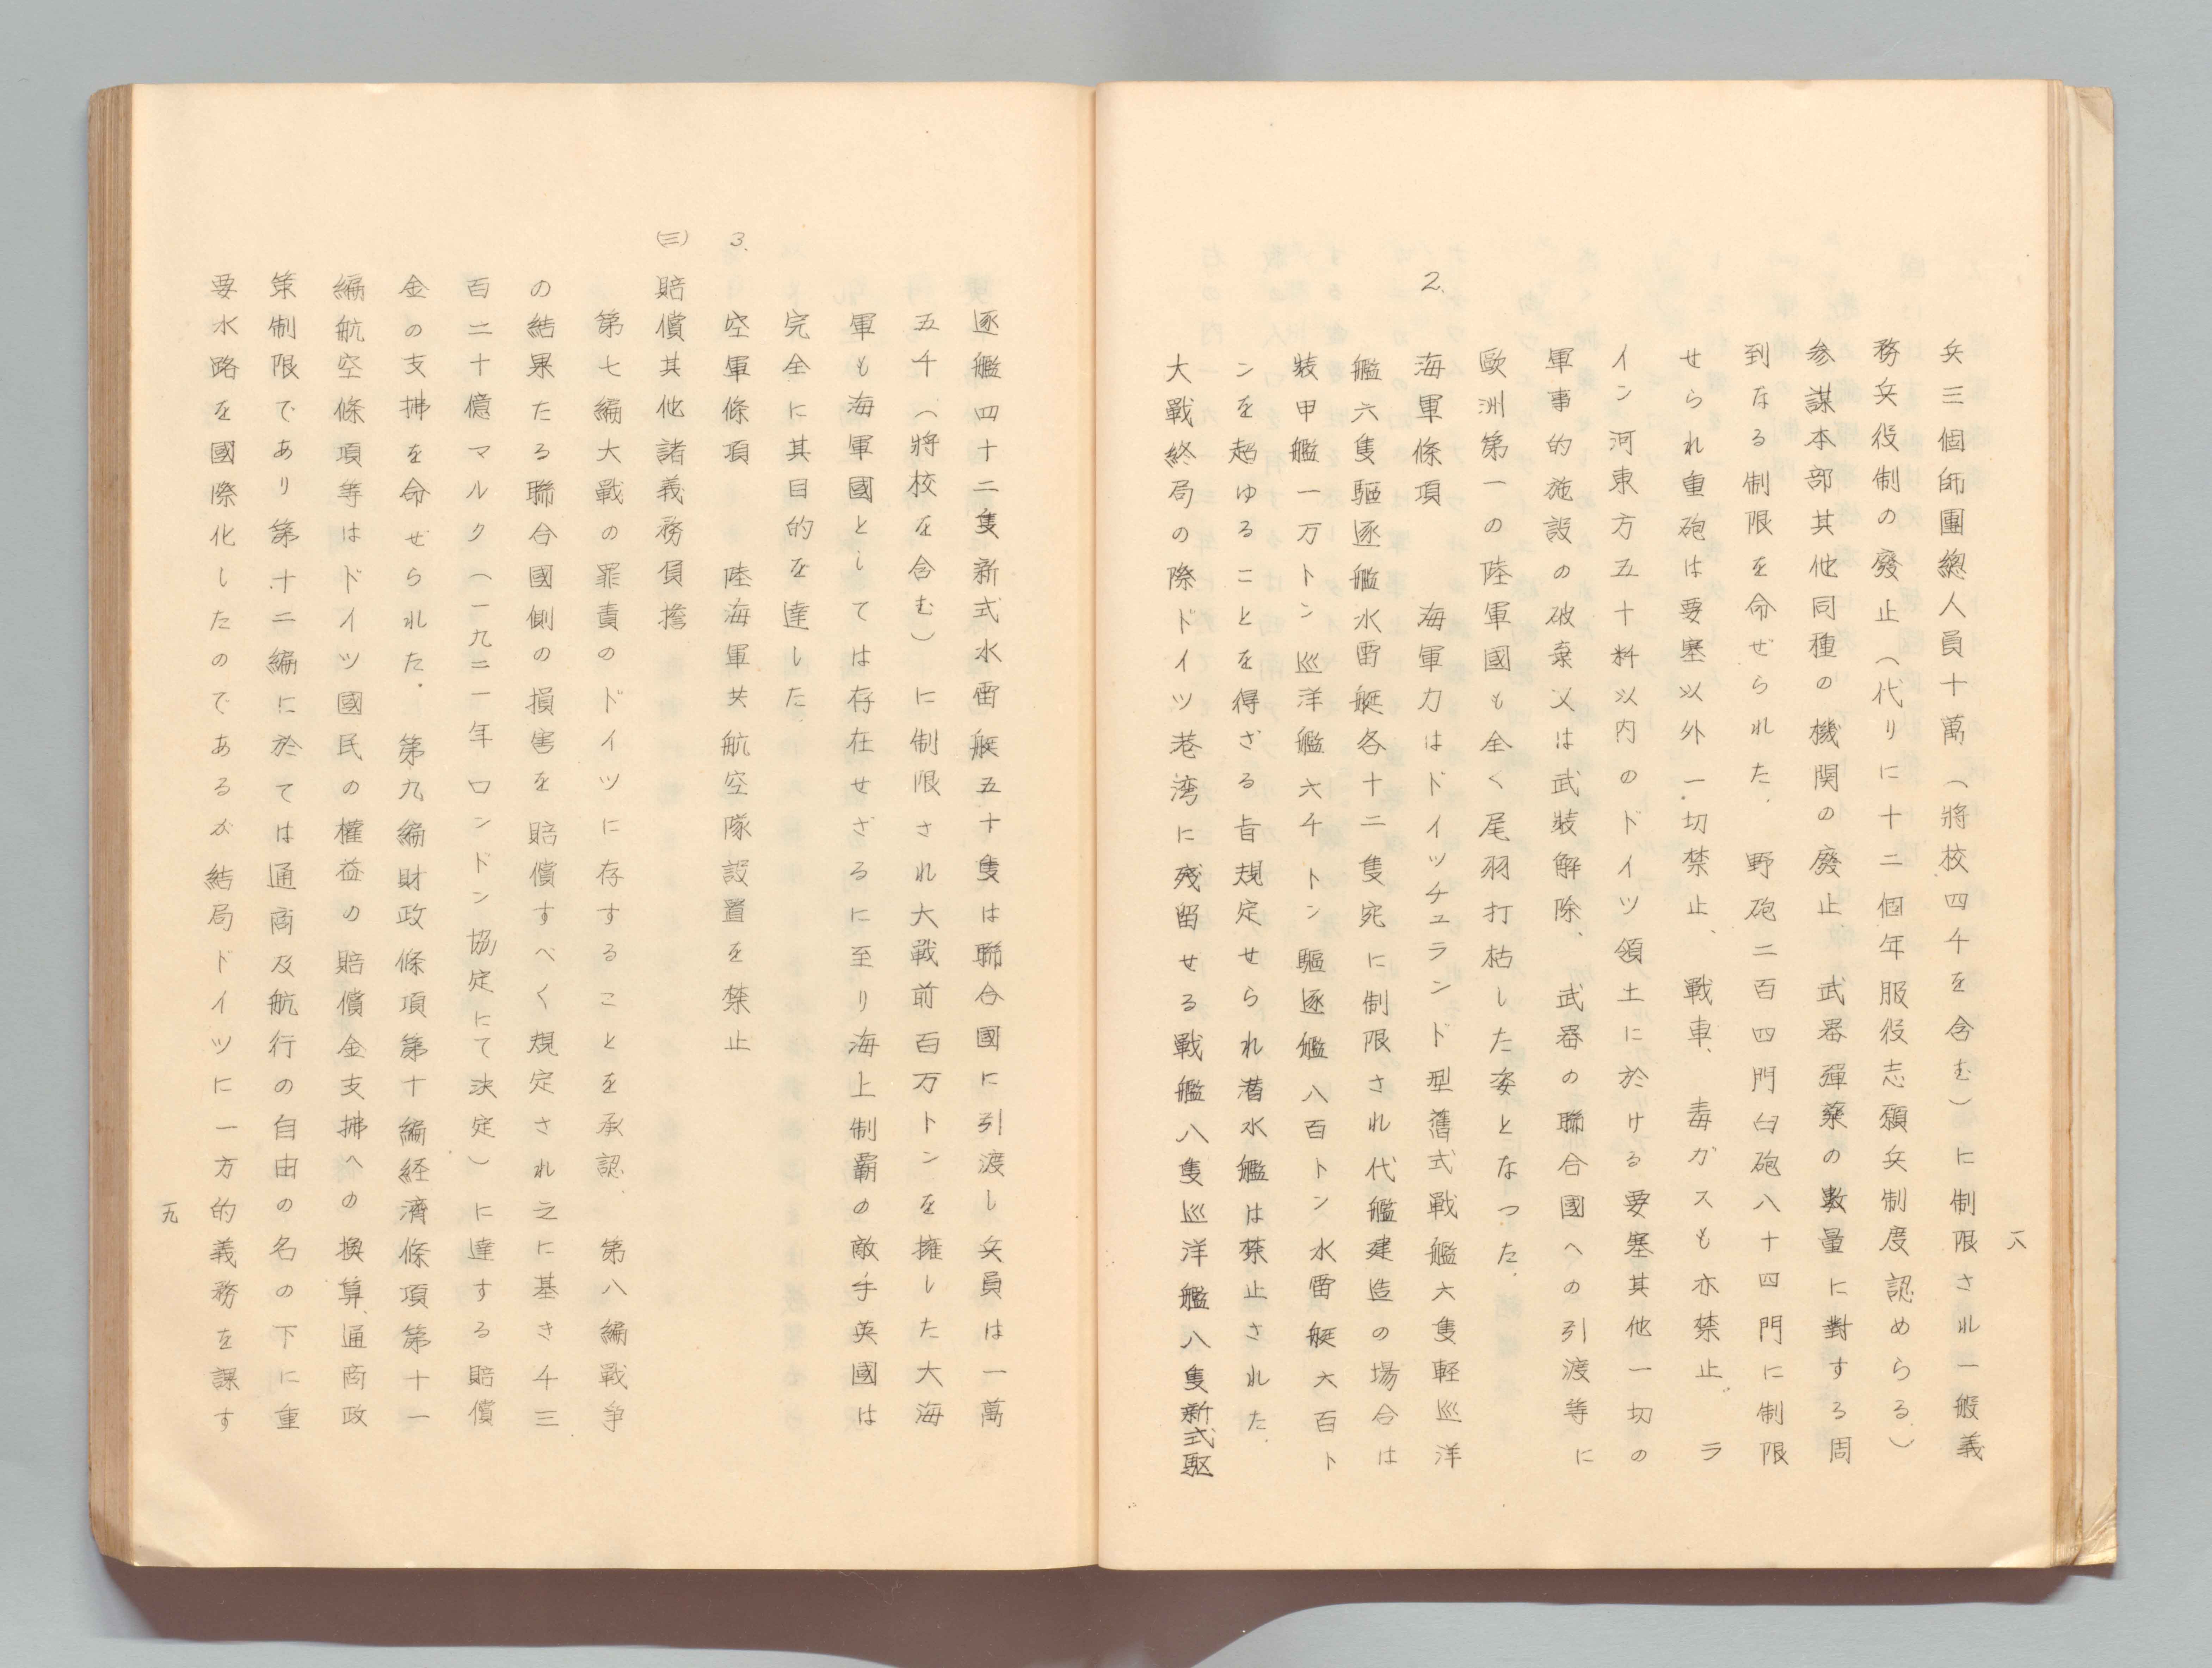 一八
兵三個師團總人員十萬（將校四千を含む）に制限され一般義
務兵役制の廢止（代りに十二個年服役志願兵制度認めらる）
参謀本部其他同種の機関の廢止、武器彈藥の數量に對する周
到なる制限を命ぜられた．野砲二百四門臼砲八十四門に制限
せられ重砲は要塞以外一切禁止、戰車、毒ガスも亦禁止．ラ
イン河東方五十粁以内のドイツ領土に於ける要塞其他一切の
軍事的施設の破棄又は武裝解除、武器の聯合國への引渡等に
歐洲第一の陸軍國も全く尾羽打枯した姿となつた．
2. 海軍條項　海軍力はドイッチュランド型舊式戰艦六隻軽巡洋
艦六隻驅逐艦水雷艇各十二隻宛に制限され代艦建造の場合は
裝甲艦一万トン巡洋艦六千トン驅逐艦八百トン水雷艇二百ト
ンを超ゆることを得ざる旨規定せられ潜水艦は禁止された．
大戰終局の際ドイツ巷湾に残留せる戰艦八隻巡洋艦八隻新式駆
逐艦四十二隻新式水雷艇五十隻は聯合國に引渡し兵員は一萬
五千（將校を含む）に制限され大戰前百万トンを擁した大海
軍も海軍國としては存在せざるに至り海上制覇の敵手英國は
完全に其目的を達した．
3. 空軍條項　陸海軍共航空隊設置を禁止
(三) 賠償其他諸義務負擔
第七編大戰の罪責のドイツに存することを承認．第八編戰争
の結果たる聯合國側の損害を賠償すべく規定され之に基き千三
百二十億マルク（一九二一年ロンドン協定にて決定）に達する賠償
金の支拂を命ぜられた．第九編財政條項第十編経濟條項第十一
編航空條項等はドイツ國民の權益の賠償金支拂への換算、通商政
策制限であり第十二編に於ては通商及航行の自由の名の下に重
要水路を國際化したのであるが結局ドイツに一方的義務を課す
一九